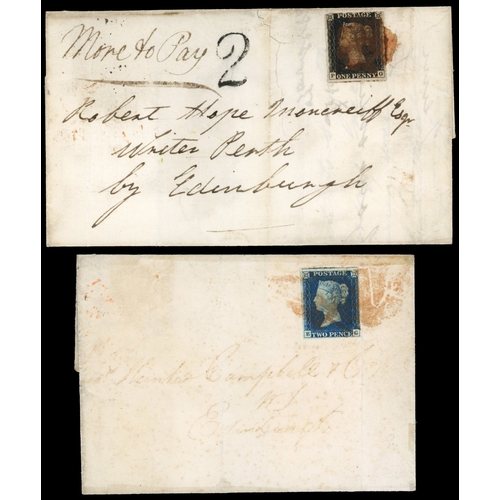 More to Pay 2
POSTAGE
ONE PENNY
Robert Hope Moncreiff Esqr
Writer Perth
by Edinburgh
POSTAGE
TWO PENCE
Campbell & Co
W.S.
Edinburgh